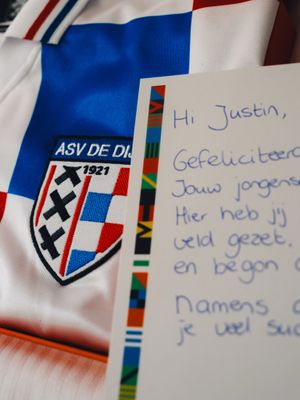 ASV DE DI
1921
Hi Justin,
Gefeliciteerd
Jouw jongens
Hier heb jij
veld gezet.
en begon
Namens
je veel suc